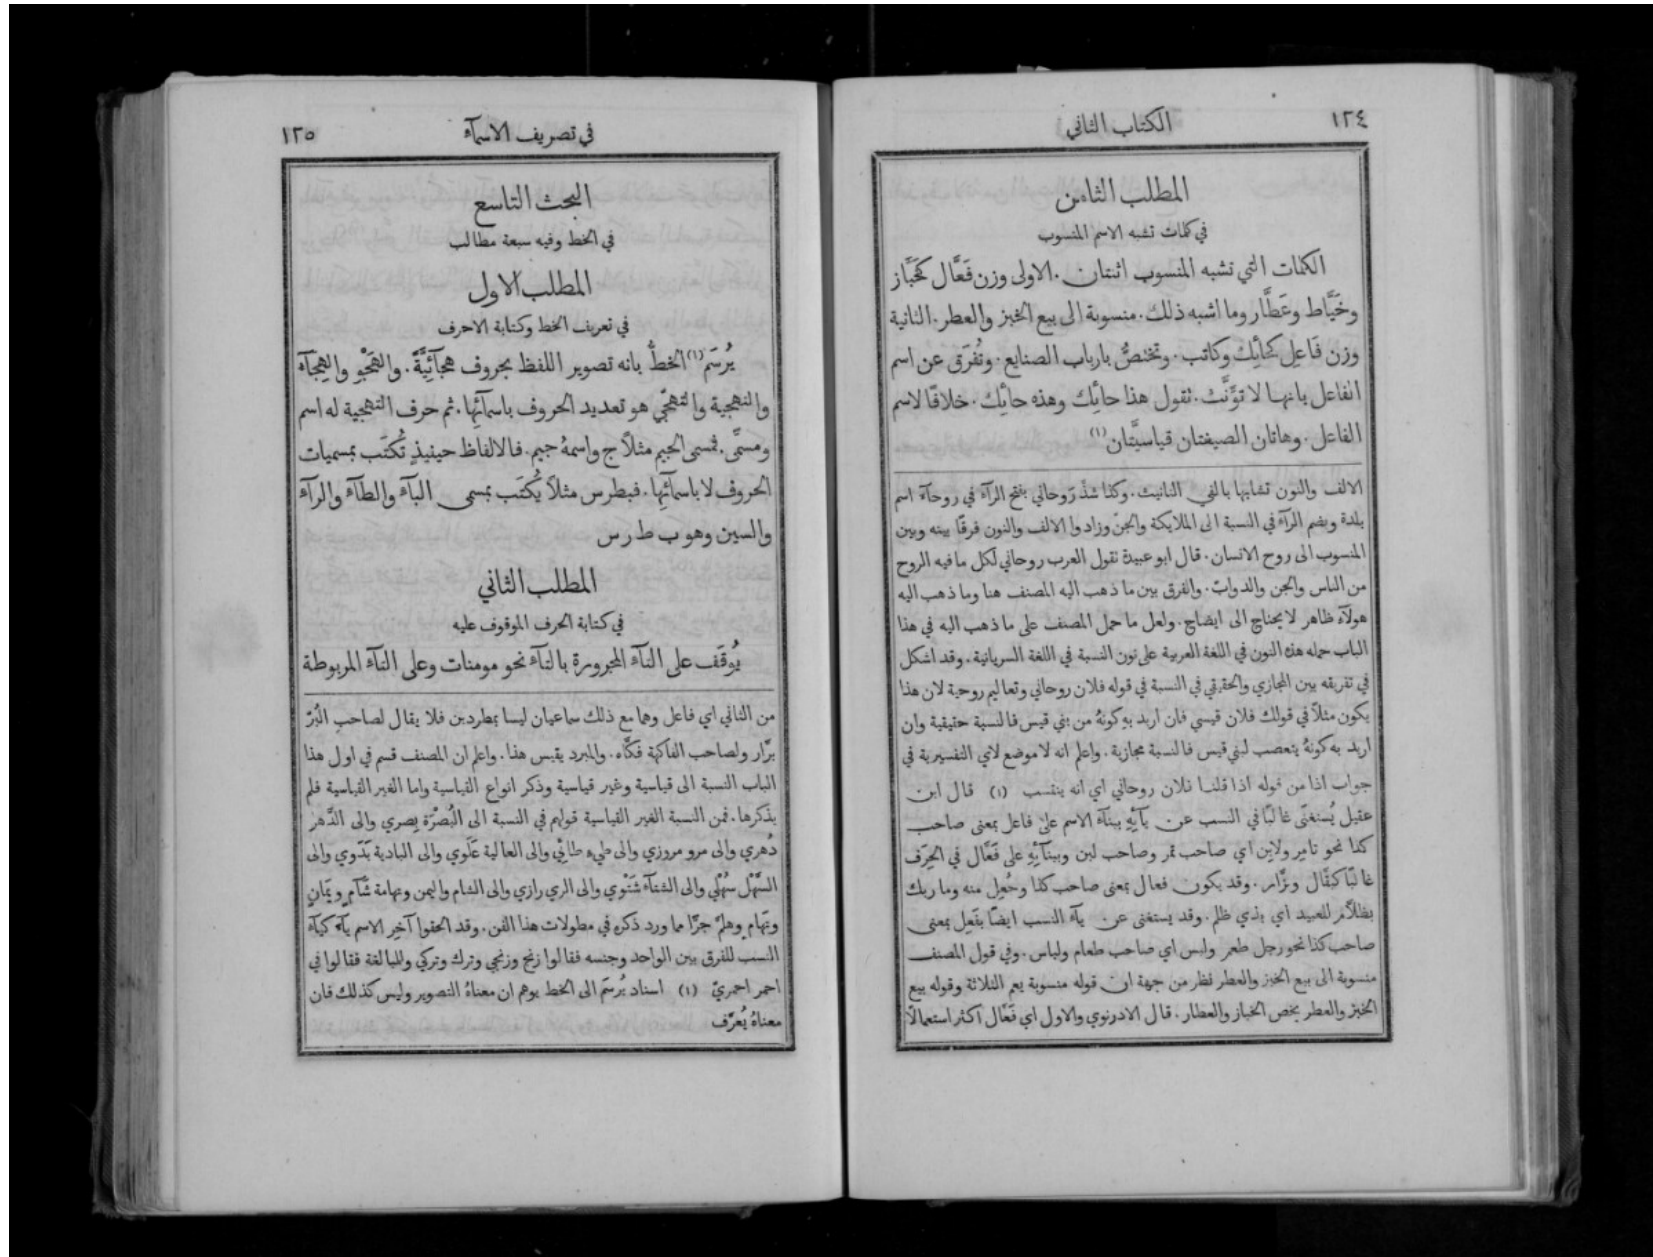 ١٢٤
الكتاب الثاني
المطلب الثامن
في كلمات تشبه الاسم المنسوب
الكلمات التي تشبه المنسوب اثنتان. الاولى وزن فَعَّال كخَبَّاز
وخَيَّاط وعَطَّار وما اشبه ذلك. منسوبة الى بيع الخبز والعطر. الثانية
وزن فَاعِل كحائِك وكاتب. وتختصُّ بارباب الصنايع. وتُفرَق عن اسم
الفاعل بانها لا تؤَنَّث. تقول هذا حائِك وهذه حائِك. خلافًا لاسم
الفاعل. وهاتان الصيغتان قياسيَّتان (١)
الالف والنون تشابها بالفي التانيث. وكذا شذّ رَوحاني بفتح الرآء في روحآء اسم
بلدة وبضم الرآء في النسبة الى الملايكة والجنّ وزادوا الالف والنون فرقًا بينه وبين
المنسوب الى روح الانسان. قال ابو عبيدة تقول العرب روحاني لكل ما فيه الروح
من الناس والجن والدوابّ. والفرق بين ما ذهب اليه المصنف هنا وما ذهب اليه
هولآء ظاهر لا يحتاج الى ايضاح. ولعل ما حمل المصنف على ما ذهب اليه في هذا
الباب حمله هذه النون في اللغة العربية على نون النسبة في اللغة السريانية. وقد اشكل
في تفريقه بين المجازي والحقيقي في النسبة في قوله فلان روحاني وتعاليم روحية لان هذا
يكون مثلاً في قولك فلان قيسي فان اريد بهِ كونهُ من بني قيس فالنسبة حقيقية وان
اريد به كونهُ يتعصب لبني قيس فالنسبة مجازية. واعلم انه لا موضع لاي التفسيرية في
جواب اذا من قوله اذا قلنا فلان روحاني اي انه ينتسب (١) قال ابن
عقيل يُستغنَى غالبًا في النسب عن يآئِهِ ببنآء الاسم على فاعل بمعنى صاحب
كذا نحو تامِر ولابِن اي صاحب تمر وصاحب لبن وببنآئِهِ على فَعَّال في الحِرَف
غالبًا كبقَّال وبزَّاز. وقد يكون فعال بمعنى صاحب كذا وجُعِل منه وما ربك
بظلاَّم للعبيد اي بذي ظلم. وقد يستغنى عن يآء النسب ايضًا بفَعِل بمعنى
صاحب كذا نحو رجل طعِم ولبس اي صاحب طعام ولباس. وفي قول المصنف
منسوبة الى بيع الخبز والعطر نظر من جهة ان قوله منسوبة يعم الثلاثة وقوله بيع
الخبز والعطر يخص الخباز والعطار. قال الادرنوي والاول اي فَعَّال اكثر استعمالاً
في تصريف الاسمآء
١٢٥
البحث التاسع
في الخط وفيه سبعة مطالب
المطلب الاول
في تعريف الخط وكتابة الاحرف
يُرسَم (١) الخطُّ بانه تصوير اللفظ بحروف هجآئِيَّةً. والهَجْوِ والهِجآء
والتهجية والتهجّي هو تعديد الحروف باسمآئِها. ثم حرف التهجية له اسم
ومسمًّى. فمسمى الجيم مثلاً ج واسمهُ جيم. فالالفاظ حينيذٍ تُكتَب بمسميات
الحروف لا باسمآئِها. فبطرس مثلاً يُكتَب بمسمى البآء والطآء والرآء
والسين وهو ب ط ر س
المطلب الثاني
في كتابة الحرف الموقوف عليه
يُوقَف على التآء المجرورة بالتآء نحو مومنات وعلى التآء المربوطة
من الثاني اي فاعل وهما مع ذلك سماعيان ليسا بمطردين فلا يقال لصاحب البُرّ
برَّار ولصاحب الفاكهة فكَّاه. والمبرد يقيس هذا. واعلم ان المصنف قسم في اول هذا
الباب النسبة الى قياسية وغير قياسية وذكر انواع القياسية واما الغير القياسية فلم
يذكرها. فمن النسبة الغير القياسية قولهم في النسبة الى البُصْرَة بِصري والى الدَّهر
دُهري والى مرو مروزي والى طيء طائي والى العالية عَلَوي والى البادية بَدَوي والى
السَّهْل سُهْلي والى الشتآء شَتْوي والى الري رازي والى الشام واليمن وتهامة شَآمٍ ويَمَانٍ
وتَهامٍ وهلمّ جرًّا مما ورد ذكره في مطولات هذا الفن. وقد الحقوا آخِر الاسم يآء كيآء
النسب للفرق بين الواحد وجنسه فقالوا زنج وزنجي وترك وتركي وللمبالغة فقالوا في
احمر احمريّ (١) اسناد يُرسَم الى الخط يوهم ان معناهُ التصوير وليس كذلك فان
معناهُ يُعرَّف